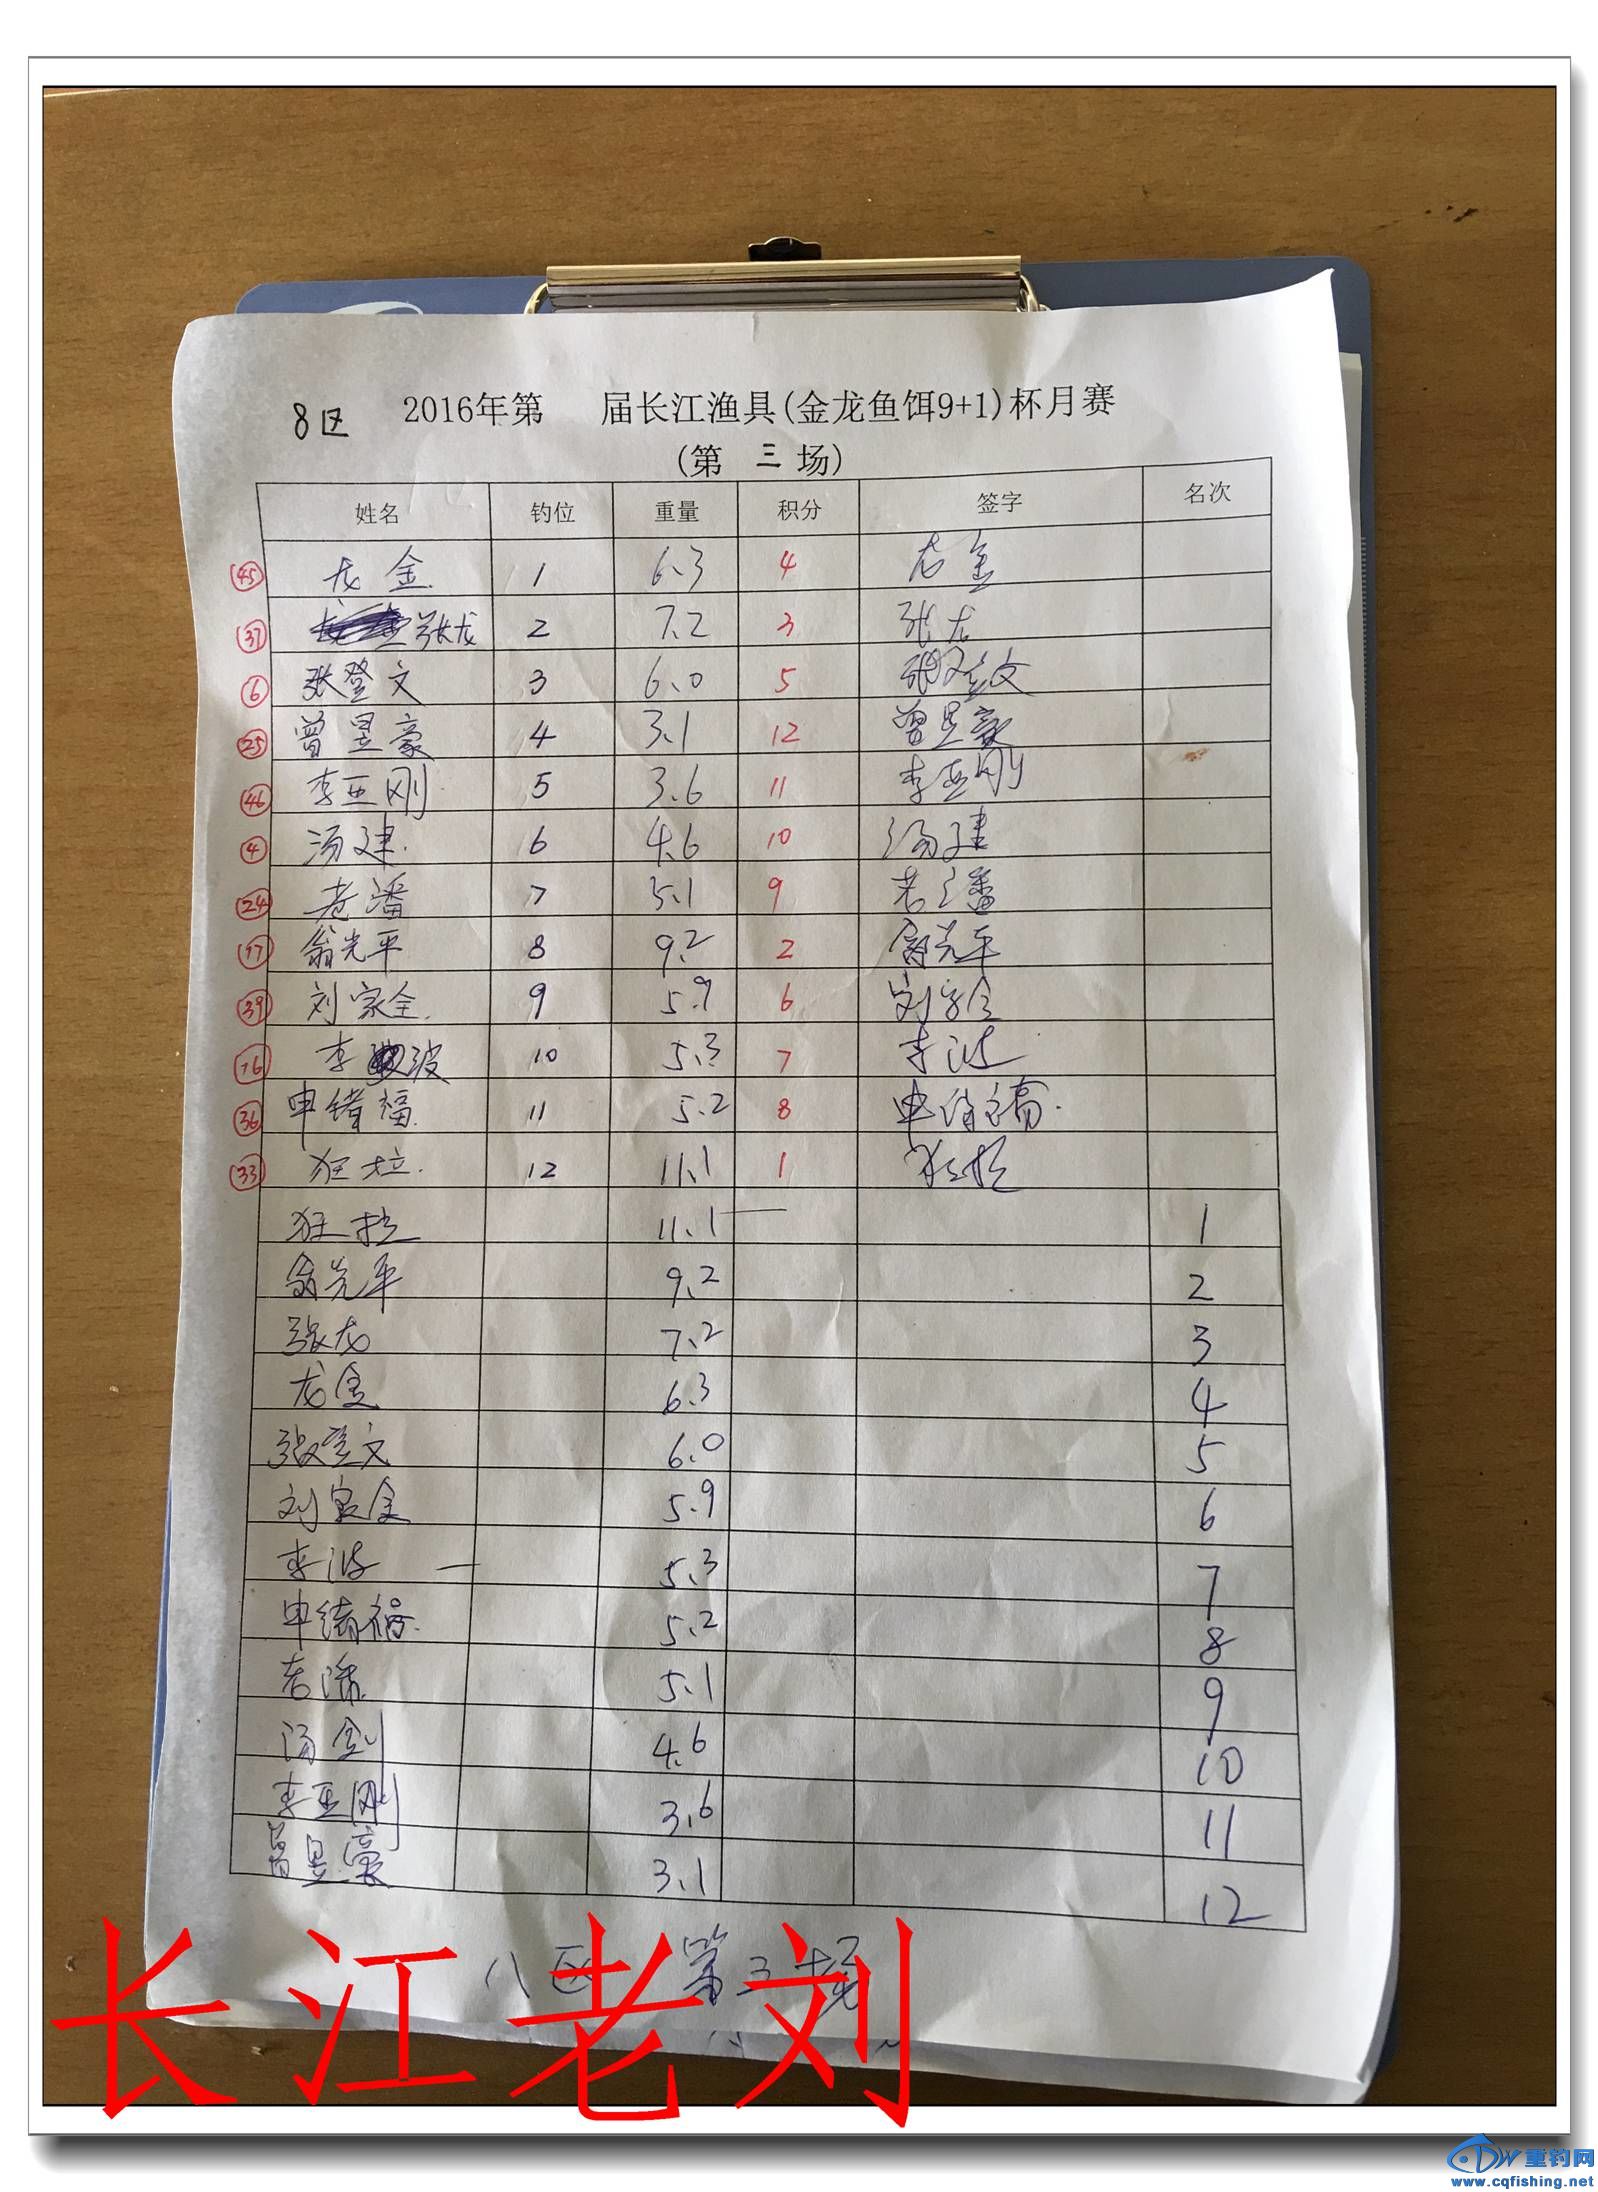 8区 2016年第 届长江渔具(金龙鱼饵9+1)杯月赛
(第 三 场)
姓名 钓位 重量 积分 签字 名次
45 龙金 1 6.3 4 龙金
37 张龙 2 7.2 3 张龙
6 张登文 3 6.0 5 张登文
25 曾昱豪 4 3.1 12 曾昱豪
46 李亚刚 5 3.6 11 李亚刚
4 汤建 6 4.6 10 汤建
24 老潘 7 5.1 9 老潘
17 翁光平 8 9.2 2 翁光平
39 刘家全 9 5.9 6 刘家全
16 李波 10 5.3 7 李波
36 申绪福 11 5.2 8 申绪福
33 狂拉 12 11.1 1 狂拉
狂拉 11.1 1
翁光平 9.2 2
张龙 7.2 3
龙金 6.3 4
张登文 6.0 5
刘家全 5.9 6
李波 5.3 7
申绪福 5.2 8
老潘 5.1 9
汤剑 4.6 10
李亚刚 3.6 11
曾昱豪 3.1 12
八区 第三场
长江老刘
重钓网
www.cqfishing.net